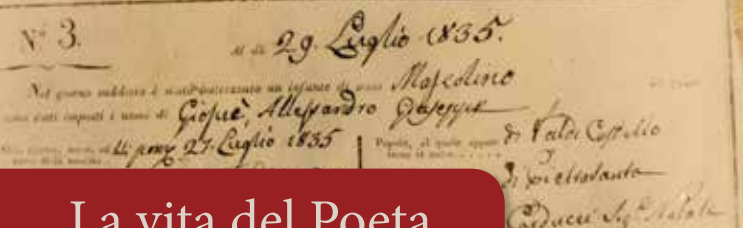 Nº 3.
Al dì 29. Luglio 1835.
Nel giorno suddetto è stato battezzato un infante di sesso Mascolino
sono stati imposti i nomi di Giosuè, Allessandro Giuseppe
27. Luglio 1835
Popolo, al quale di Valdi Castello
di Pietrasanta
Carducci Sigʳ
La vita del Poeta